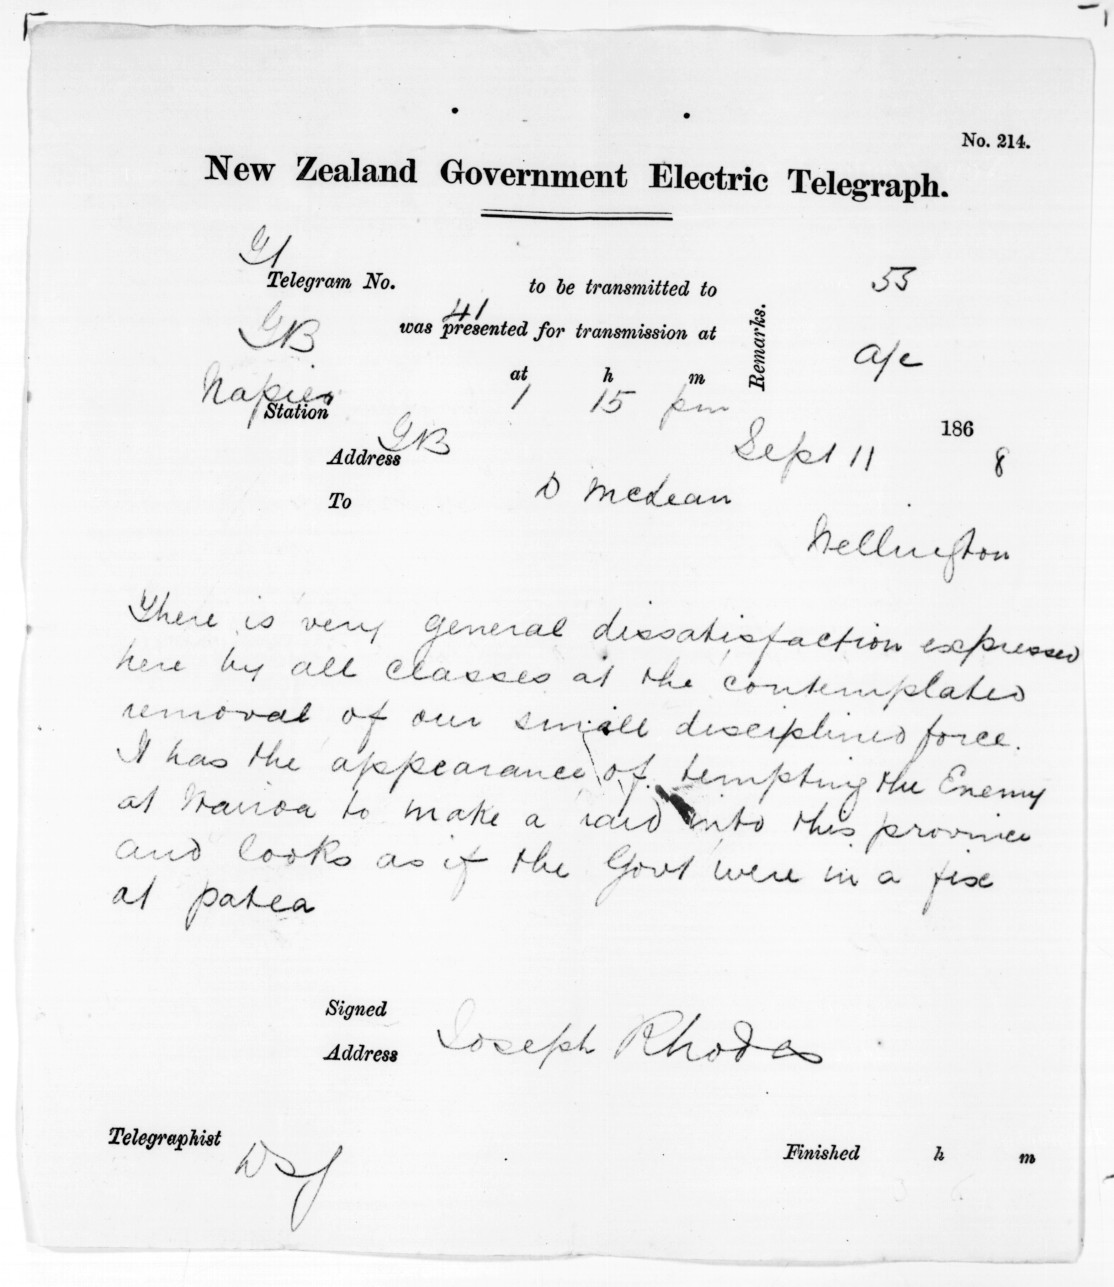 No. 214.
New Zealand Government Electric Telegraph.
Telegram No. to be transmitted to 53
41
was presented for transmission at
Remarks.
GB
a/c
at h m
Napier 1 15 pm
Station
186
GB
Address Sept 11 8
To D McLean
Wellington
There is very general dissatisfaction expressed
here by all classes at the contemplated
removal of our small disciplined force.
It has the appearance of tempting the Enemy
at Wairoa to make a raid into this province
and looks as if the Govt were in a fix
at patea
Signed
Joseph Rhodes
Address
Telegraphist
Finished h m